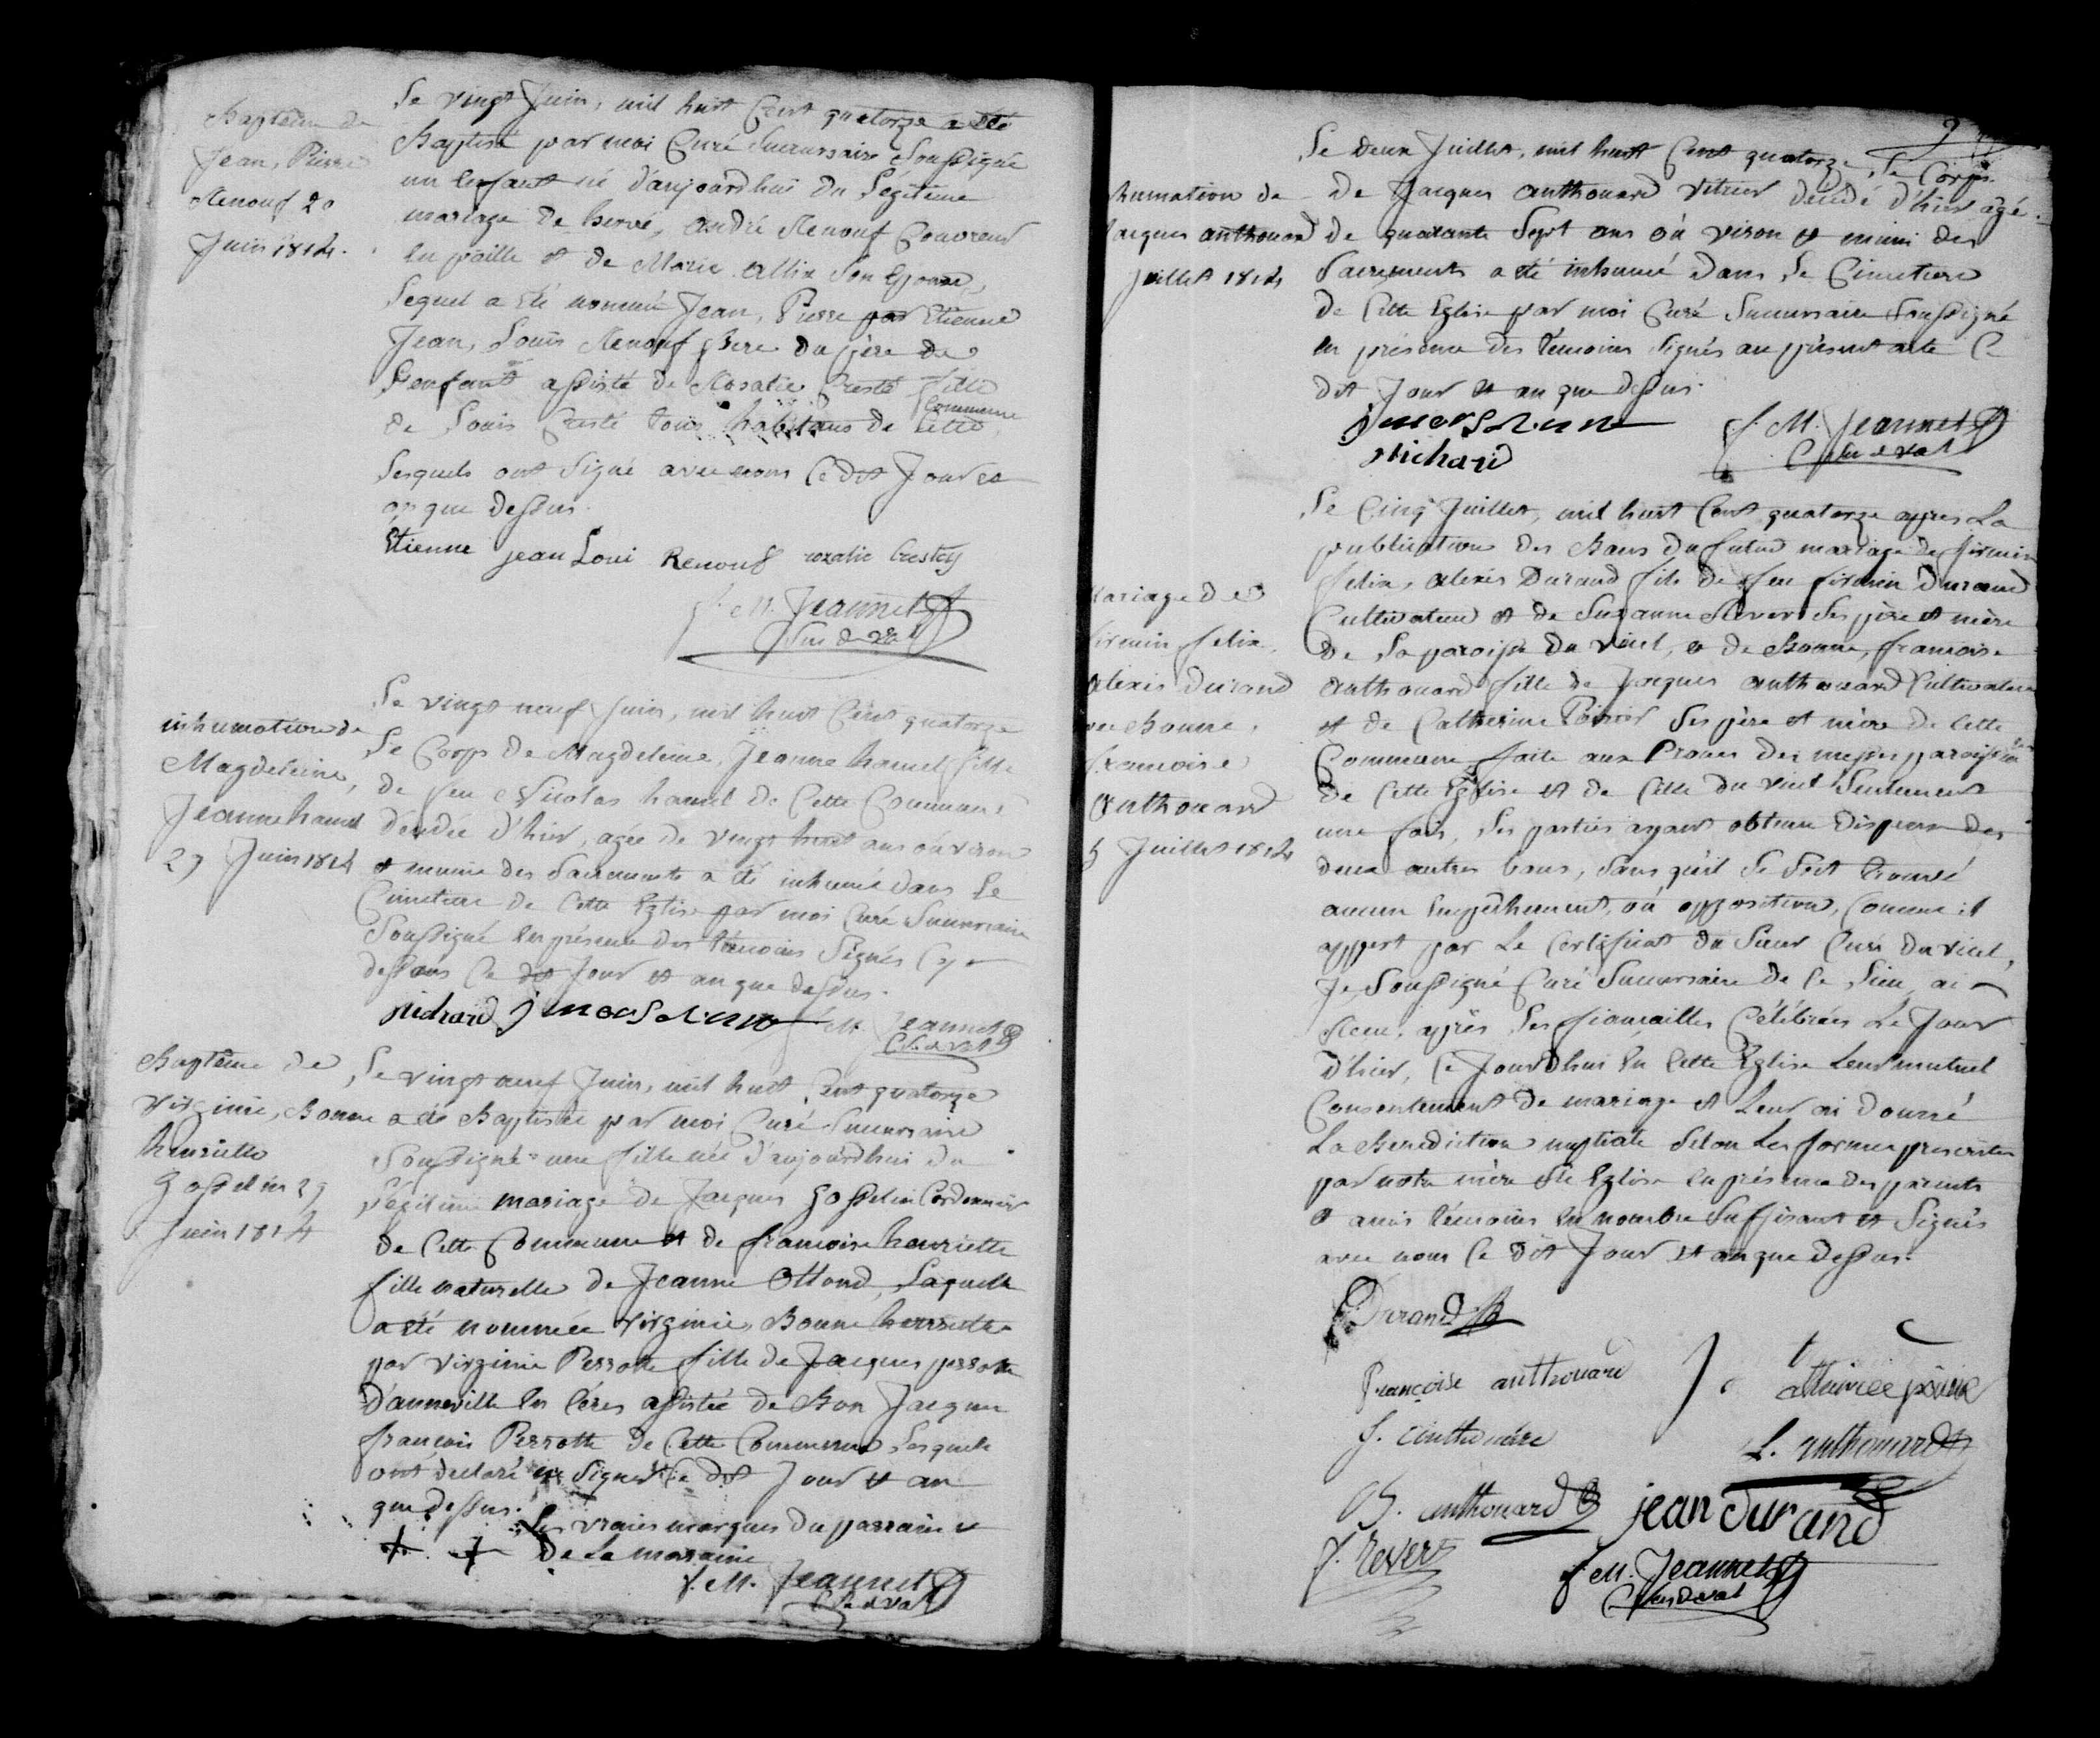 Baptême de
Jean, Pierre
Renouf 20
Juin 1814.
Le vingt Juin, mil huit Cent quatorze a été
Baptisé par moi Curé Succursaire Soussigné
un Enfant né d'aujourd'hui du Légitime
mariage de hervé, andré Renouf Couvreur
en paille et de Marie allix Son Epouse,
Lequel a été nommé Jean, Pierre par Etienne
Jean, Louis Renouf frere du père de
L'enfant assisté de Rosalie Cresté fille
de Louis Cresté tous habitans de Cette Commune
Lesquels ont Signé avec nous Ce dit Jour et
an que dessus.
Etienne jean Loui Renouf rozalie Crestey
f. M. Jeannet
inhumation de
Magdeleine,
Jeanne hamel
29 Juin 1814
Le vingt neuf Juin, mil huit Cent quatorze
Le Corps de Magdeleine, Jeanne hamel fille
de feu Nicolas hamel de Cette Commune
décédée d'hier, agée de vingt huit ans ou viron
et munie des Sacrements a été inhumé dans Le
Cimetiere de Cette Eglise par moi Curé Succursaire
Soussigné en présence des témoins Signés Cy
dessous Ce dit Jour et an que dessus.
Michard
f. M. Jeannet
Baptême de
Virginie, Bonne
henriette
Gosselin 29
Juin 1814
Le vingt neuf Juin, mil huit Cent quatorze
a été Baptisée par moi Curé Succursaire
Soussigné une fille née d'aujourd'hui du
Légitime mariage de Jacques Gosselin Cordonnier
de Cette Commune et de francoise henriette
fille naturelle de Jeanne Ottond, Laquelle
a été nommée Virginie, Bonne henriette
par Virginie Perrotte fille de Jacques perrotte
D'anneville en Céres assistée de Bon Jacques
françois Perrotte de Cette Commune Lesquels
ont declaré Signer Ce dit Jour et an
que dessus. Les vraies marques du parrain et
de La marraine
f. M. Jeannet
humation de
Jacques anthouard
Juillet 1814
Le deux Juillet, mil huit Cent quatorze, Le Corps
de Jacques anthouard vitrier décédé d'hier agé
de quarante Sept ans ou viron et muni des
Sacrements a été inhumé dans Le Cimetiere
de Cette Eglise par moi Curé Succursaire Soussigné
en présence des témoins Signés au présent acte Ce
dit Jour et an que dessus.
f. M. Jeannet
Michard
mariage de
firmin felix,
alexis Durand
et Bonne,
francoise
anthouard
5 Juillet 1814
Le Cinq Juillet, mil huit Cent quatorze apres La
publication des Bans du futur mariage de firmin
felix, alexis Durand fils de feu firmin Durand
Cultivateur et de Suzanne Rever Ses père et mère
de La paroisse du vicel, et de Bonne, francoise
anthouard fille de Jacques anthouard Cultivateur
et de Catherine Poirier Ses père et mère de Cette
Commune faite aux Prones des messes paroissiales
de Cette Eglise et de Celle du vicel Seulement
une fois, Les parties ayant obtenu dispense des
deux autres bans, Sans qu'il Se Soit trouvé
aucun Empêchement, ou opposition, Comme il
appert par Le Certificat du Sieur Curé du vicel,
Je Soussigné Curé Succursaire de Ce Lieu ai
Recu, après Les fiançailles Célébrées Le Jour
d'hier, Ce Jourd'hui En Cette Eglise Leur mutuel
Consentement de mariage et Leur ai donné
La Bénédiction nuptiale Selon Les formes prescrites
par notre mère Ste Eglise en présence des parents
et amis témoins En nombre Suffisant et Signés
avec nous Ce dit Jour et an que dessus.
Durand
Françoise anthouard
L. anthouard
anthouard jean durand
f. Rever
f. M. Jeannet